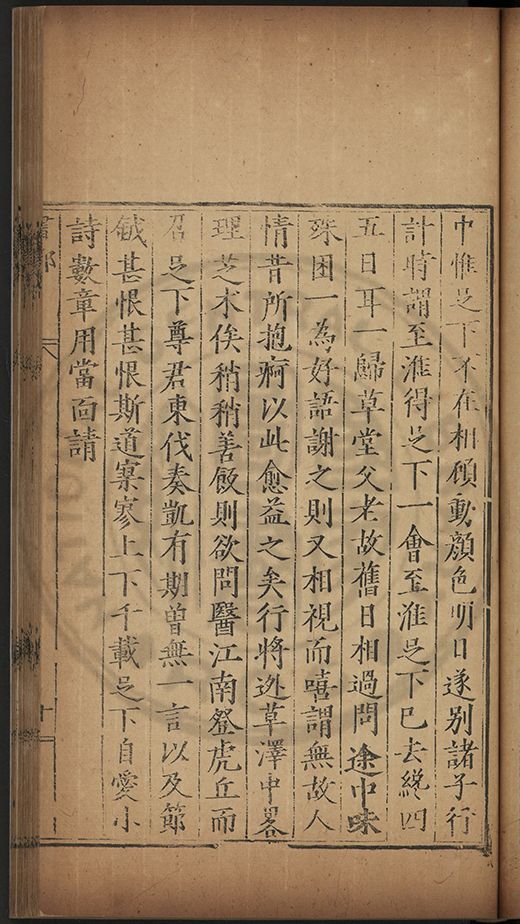 中惟足下不在相顧動顔色明日遂别諸子行
計時謂至淮得足下一會至淮足下已去纔四
五日耳一歸草堂父老故舊日相過問途中味
殊困一為好語謝之則又相視而嘻謂無故人
情昔所抱痾以此愈益之矣行將迯草澤中畧
理芝朮俟稍稍善飯則欲問醫江南登虎丘而
召足下尊君東伐奏凱有期曽無一言以及節
鉞甚恨甚恨斯道寥寥上下千載足下自愛小
詩數章用當面請
十